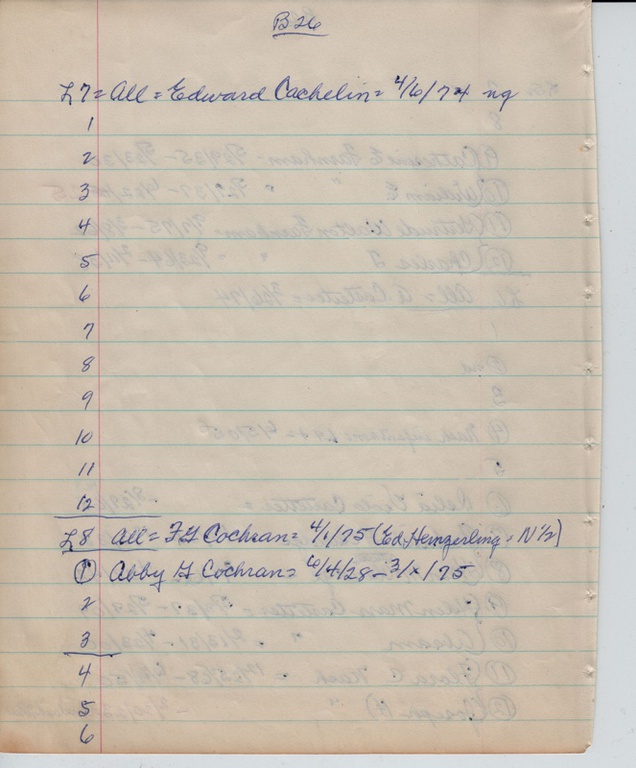 B26
L7 = All = Edward Cachelin = 4/6/74 ng
1
2
3
4
5
6
7
8
9
10
11
12
L8 All = F G Cochran = 4/1/75 (Ed Hemzerling = N 1/2)
1 Abby G Cochran = 6/4/28 - 3/x/75
2
3
4
5
6